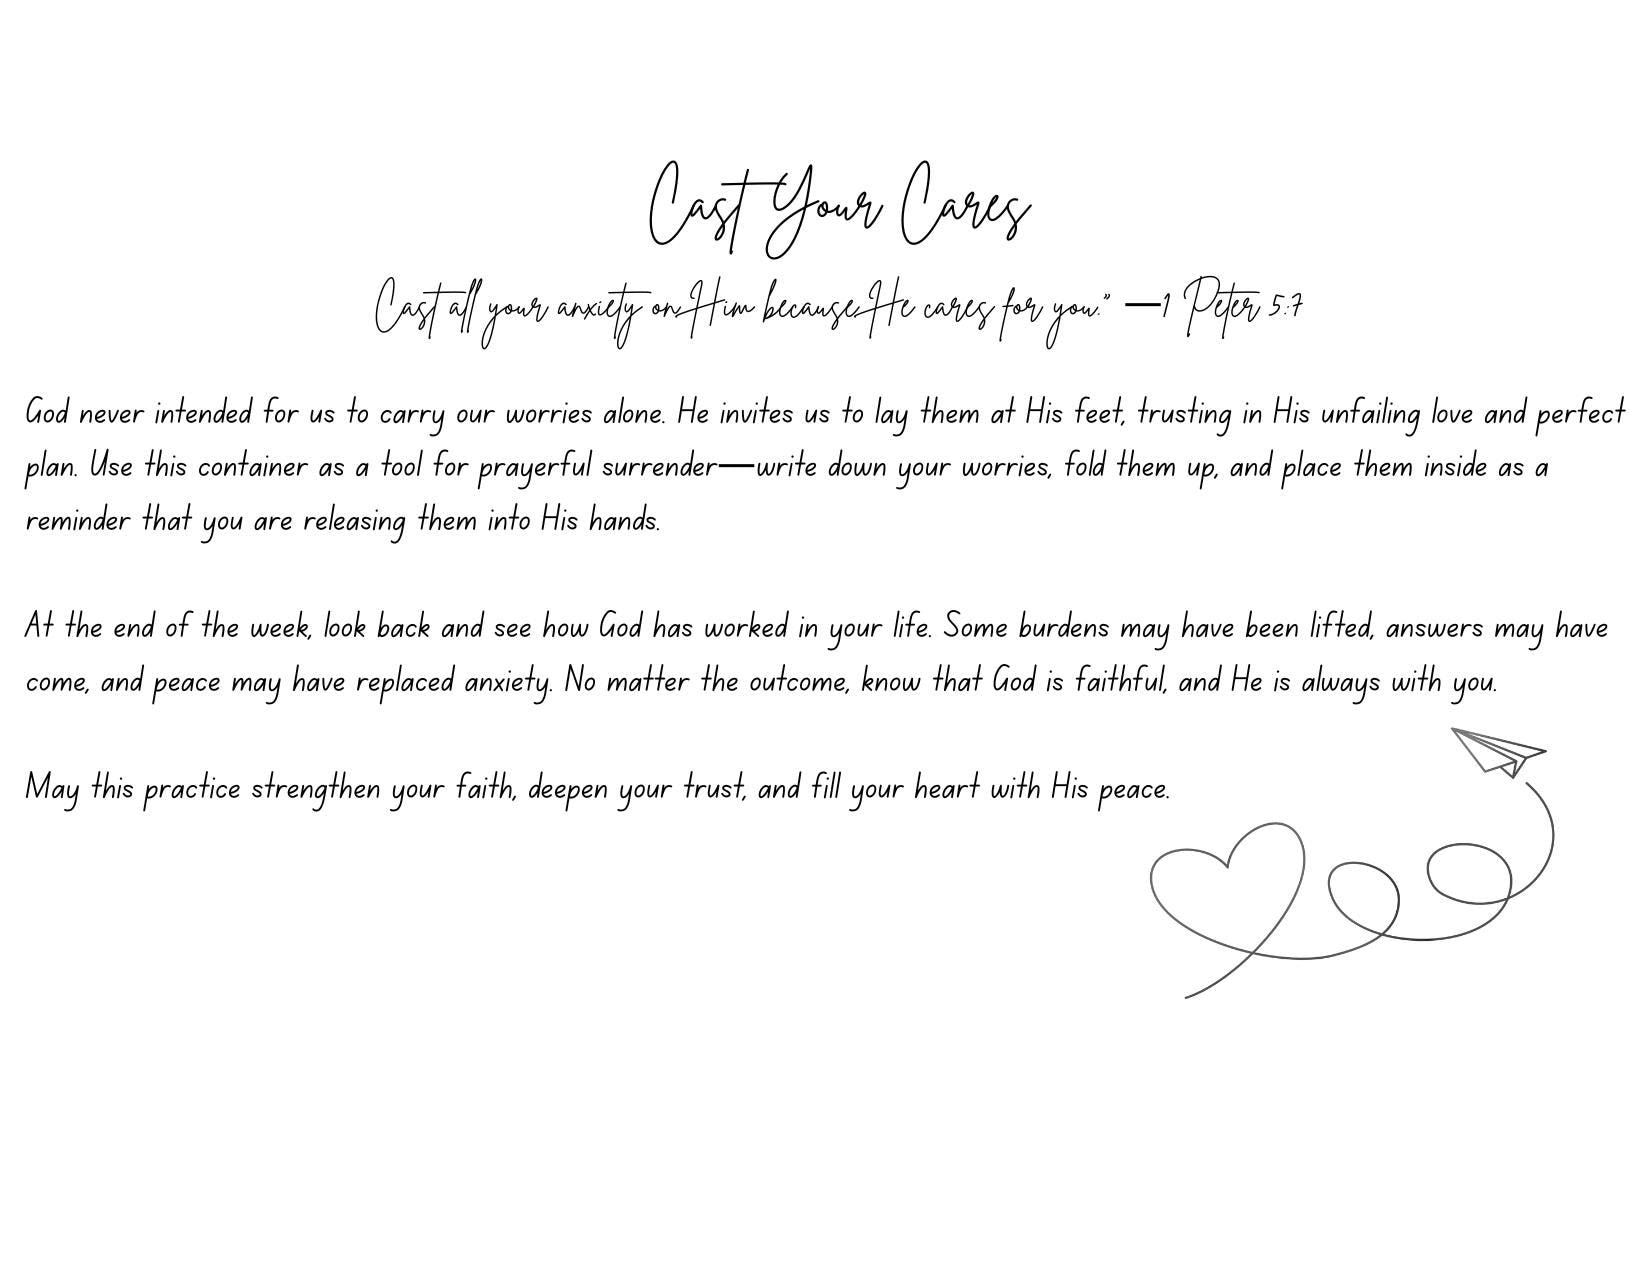 Cast Your Cares
Cast all your anxiety on Him because He cares for you.” —1 Peter 5:7
God never intended for us to carry our worries alone. He invites us to lay them at His feet, trusting in His unfailing love and perfect
plan. Use this container as a tool for prayerful surrender—write down your worries, fold them up, and place them inside as a
reminder that you are releasing them into His hands.
At the end of the week, look back and see how God has worked in your life. Some burdens may have been lifted, answers may have
come, and peace may have replaced anxiety. No matter the outcome, know that God is faithful, and He is always with you.
May this practice strengthen your faith, deepen your trust, and fill your heart with His peace.